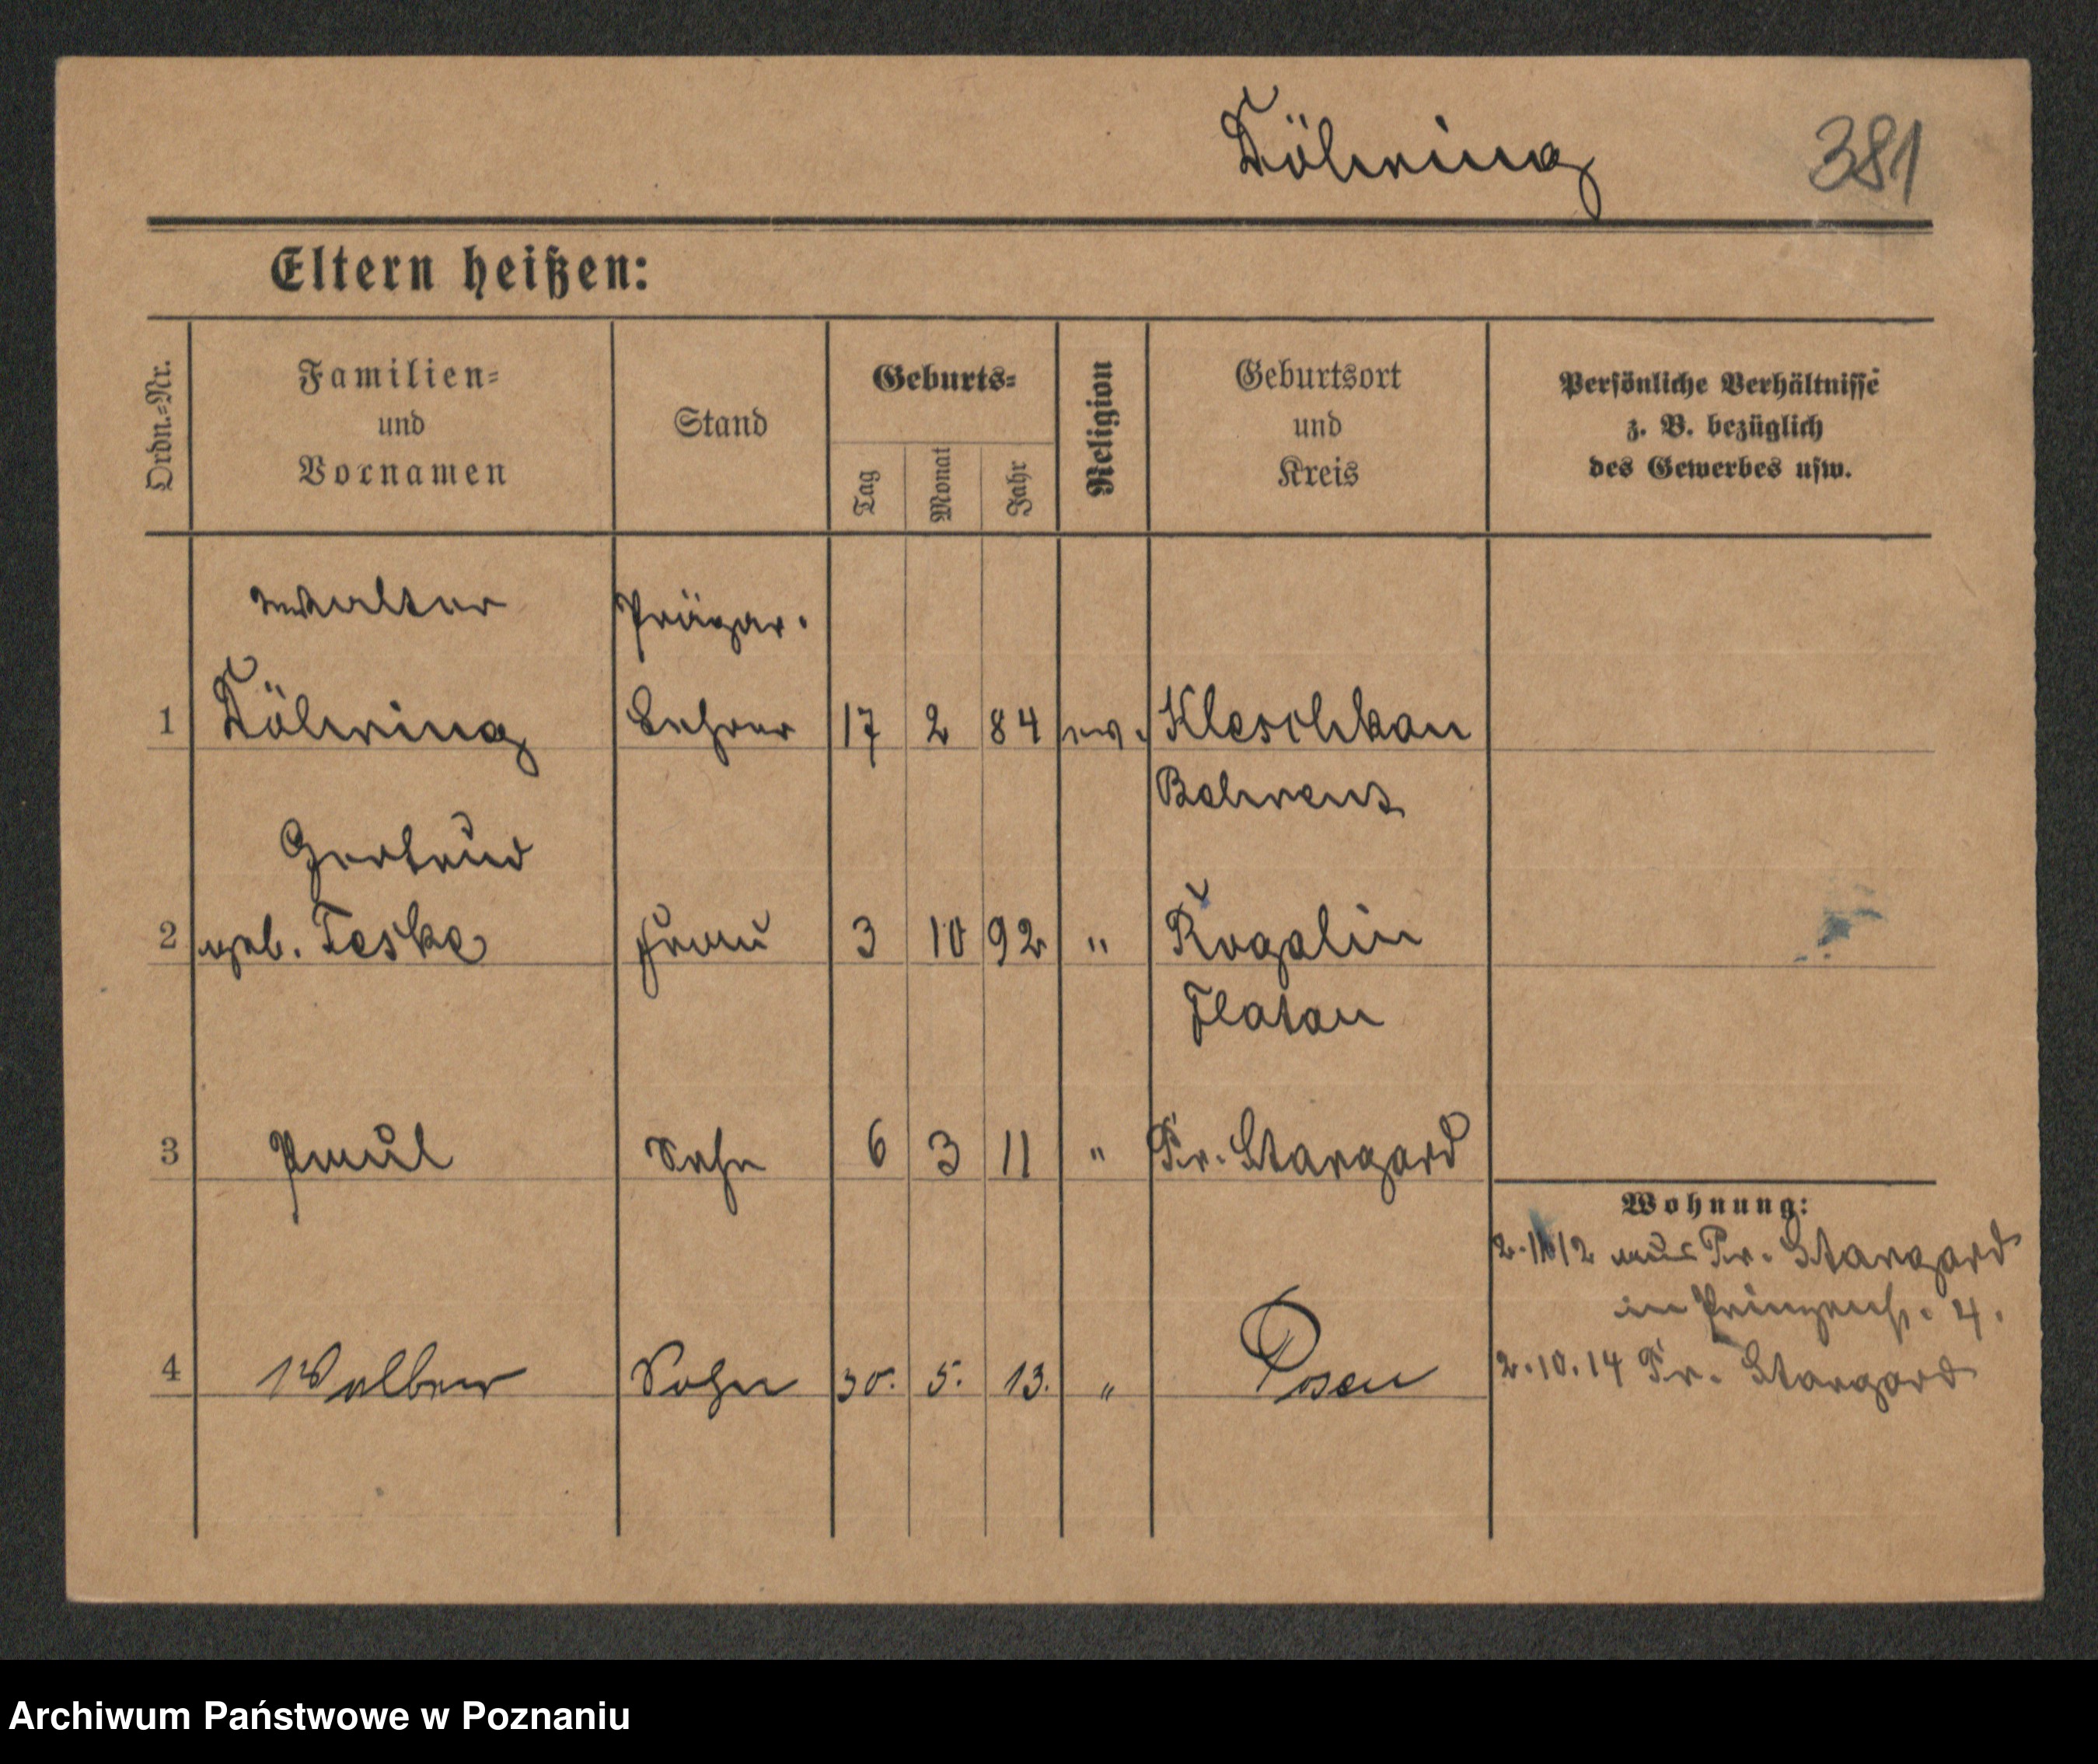 Döhring
381
Eltern heißen:
Ordn.=Nr.
Familien=
und
Vornamen
Stand
Geburts=
Tag
Monat
Jahr
Religion
Geburtsort
und
Kreis
Persönliche Verhältnisse
z. B. bezüglich
des Gewerbes usw.
Walter
1 Döhring Lehrer 17 2 84 ev. Kleschkau
Behrent
Gertrud
2 geb. Teske Frau 3 10 92 " Rogalin
Flatau
3 Paul Sohn 6 3 11 " Pr. Stargard
Wohnung:
aus Pr. Stargard
in Prinzenst. 4.
4 Sohn 30. 5. 13. " Posen
2.10.14 Pr. Stargard
Archiwum Państwowe w Poznaniu